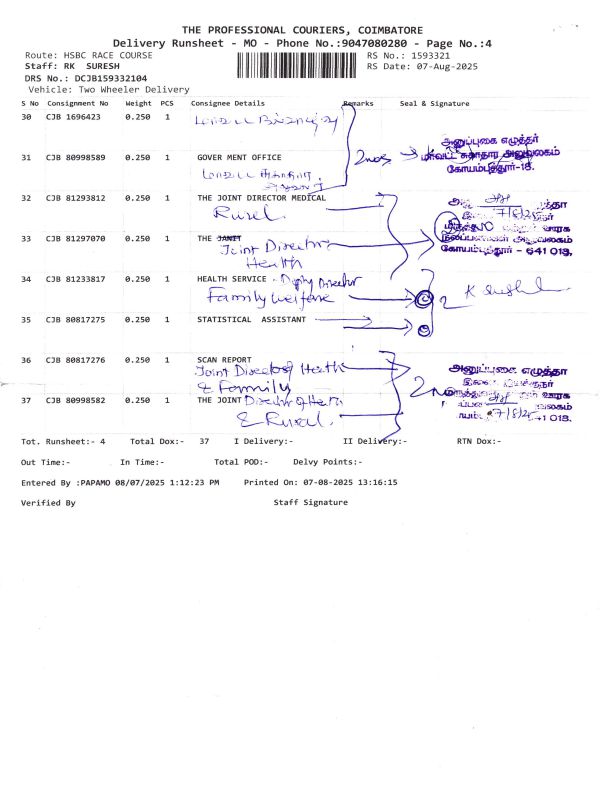 THE PROFESSIONAL COURIERS, COIMBATORE
Delivery Runsheet - MO - Phone No.:9047080280 - Page No.:4
Route: HSBC RACE COURSE RS No.: 1593321
Staff: RK SURESH RS Date: 07-Aug-2025
DRS No.: DCJB159332104
Vehicle: Two Wheeler Delivery
S No Consignment No Weight PCS Consignee Details Remarks Seal & Signature
30 CJB 1696423 0.250 1
அனுப்புகை எழுத்தர்
31 CJB 80998589 0.250 1 GOVER MENT OFFICE 2nos மாவட்ட சுகாதார அலுவலகம்
கோயம்புத்தூர்-18.
32 CJB 81293812 0.250 1 THE JOINT DIRECTOR MEDICAL
Rural 7/8/25
33 CJB 81297070 0.250 1 THE JANIT
Joint Director கோயம்புத்தூர் - 641 018.
Health
34 CJB 81233817 0.250 1 HEALTH SERVICE - Deputy Director
Family welfare 2
35 CJB 80817275 0.250 1 STATISTICAL ASSISTANT
36 CJB 80817276 0.250 1 SCAN REPORT
Joint Director of Health அனுப்புகை எழுத்தர்
& Family 2
37 CJB 80998582 0.250 1 THE JOINT Director of Health
& Rural 7/8/25 641 018.
Tot. Runsheet:- 4 Total Dox:- 37 I Delivery:- II Delivery:- RTN Dox:-
Out Time:- In Time:- Total POD:- Delvy Points:-
Entered By :PAPAMO 08/07/2025 1:12:23 PM Printed On: 07-08-2025 13:16:15
Verified By Staff Signature